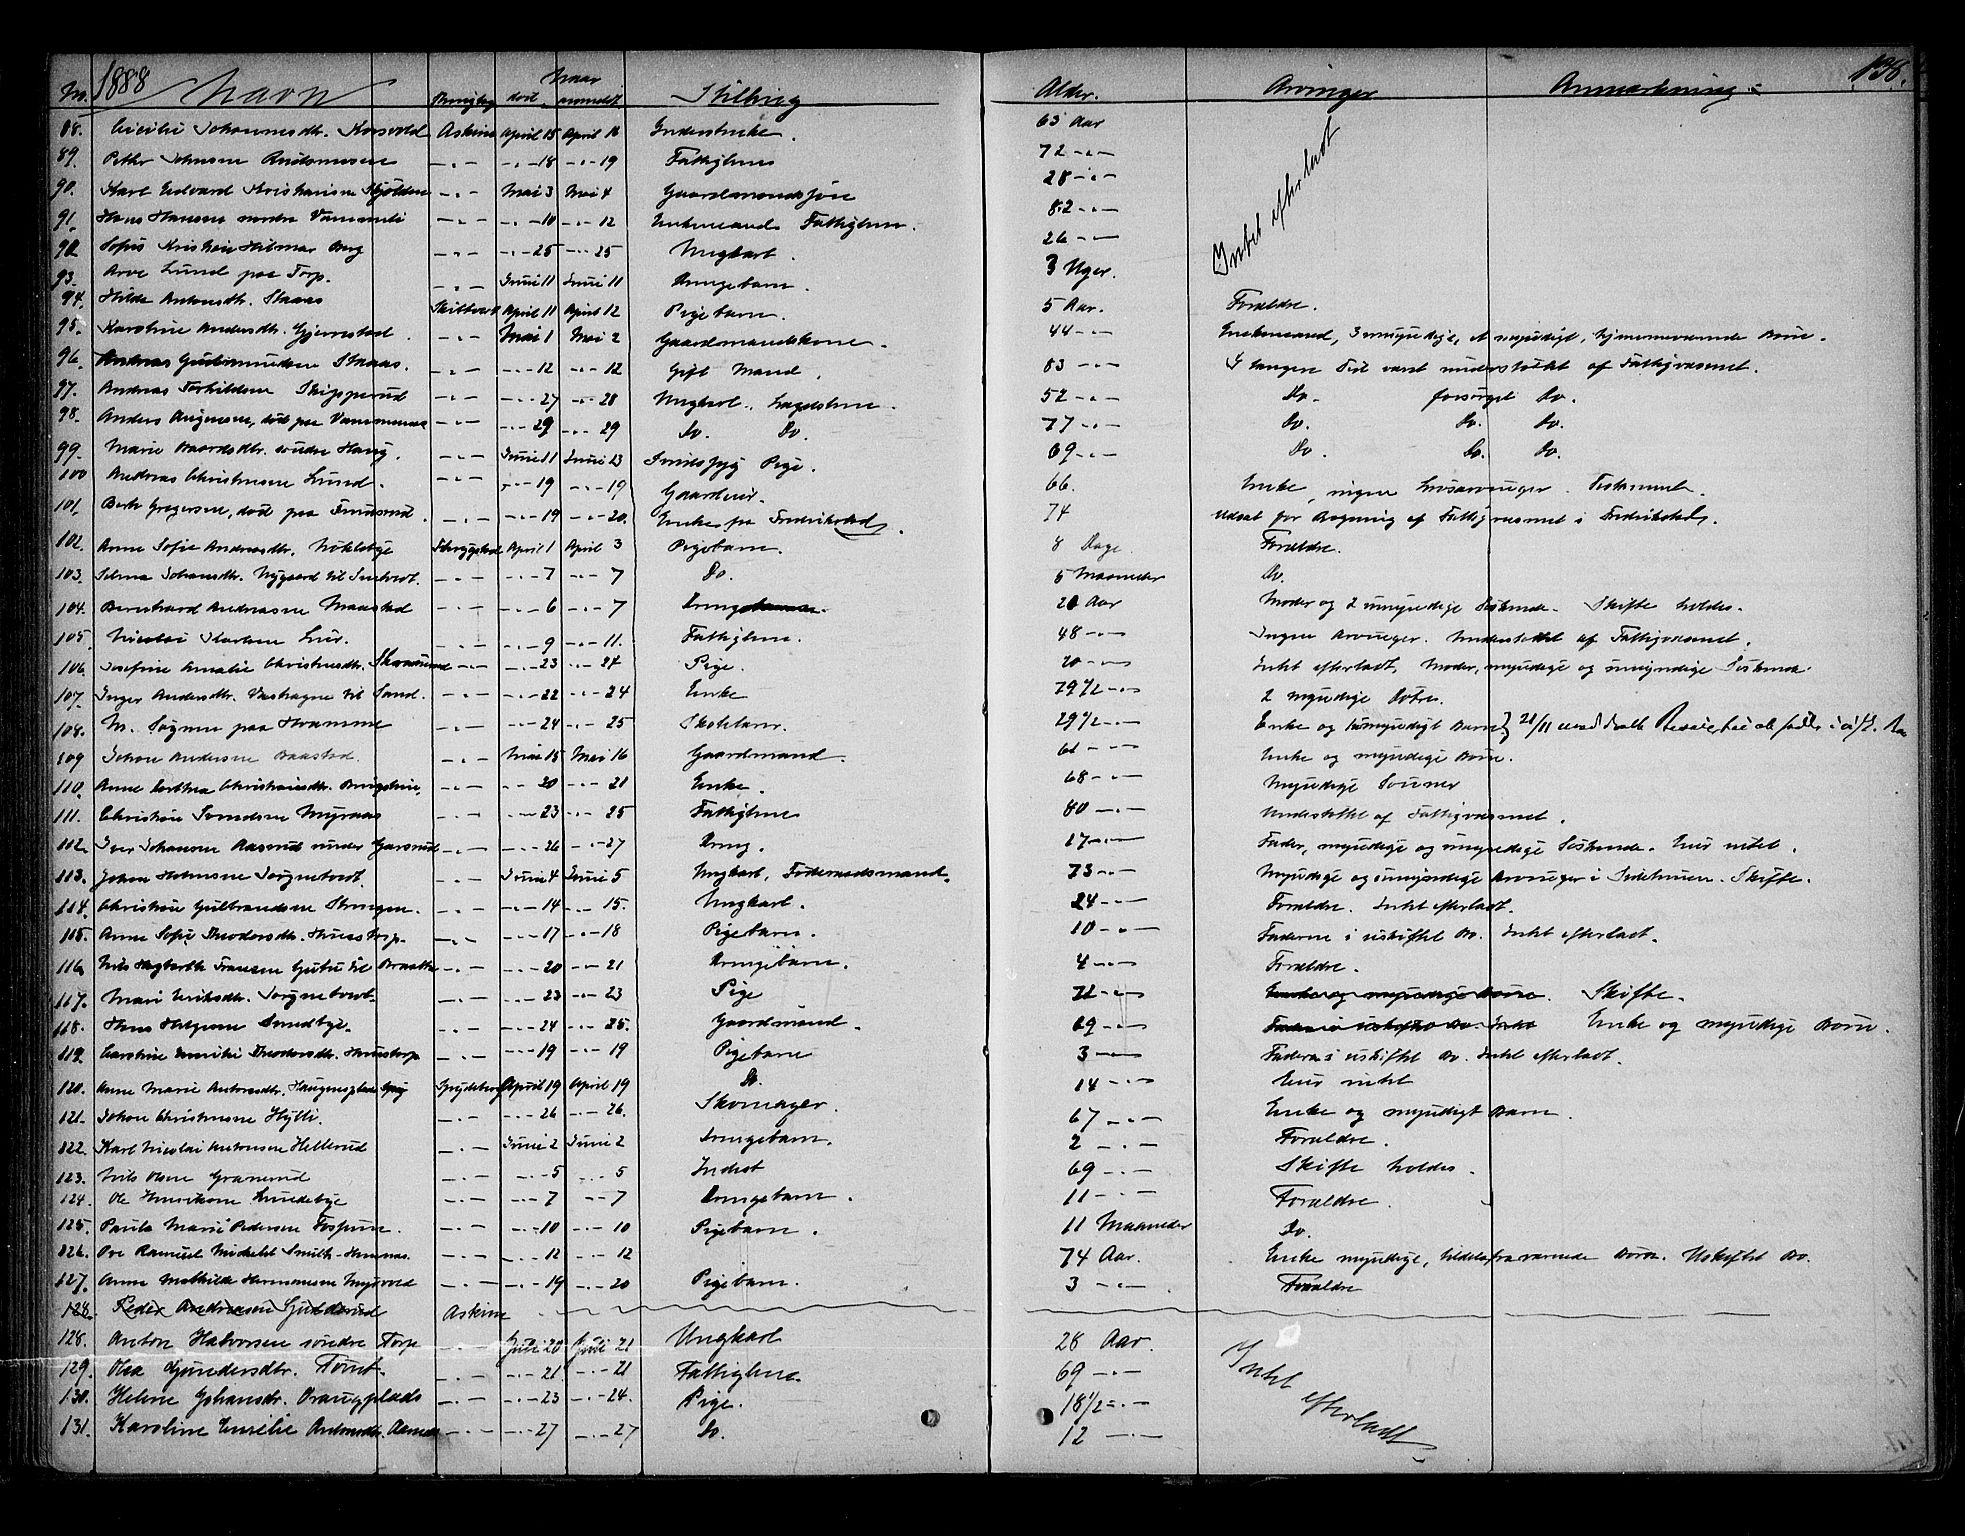 1888 138.
No. Navn Thinglag Naar død anmeldt Stilling Alder. Arvinger Anmærkning
88. Cicilie Johannesdtr. Korsvold Askim April 15 April 16 Inderstenke. 63 Aar
89. Petter Johnsen Rudsmosen —.— —.—18 —.—19 Fattiglem 72 —.—
90. Karl Edvard Kristiansen Skjolden —.— Mai 3 Mai 4 Gaardmandssøn 28 —.—
91. Hans Hansen nordre Vammeli —.— —.—10 —.—12 Enkemand Fattiglem. 82 —.—
92 Sofus Kristian Hilmar Berg —.— —.—25 —.—25 Ungkarl. 26 —.—
93. Arve Lund paa Torp. —.— Juni 11 Juni 11 Drengebarn. 3 Uger.
Intet efterladt
94. Hilda Antonsdtr. Skaas Skiptvedt April 11 April 12 Pigebarn. 5 Aar. Forældre.
95. Karoline Andersdtr. Gjermstad. —.— Mai 1 Mai 2 Gaardmandskone. 44 —.— Enkemand, 3 umyndige, et myndigt, hjemmeværende Børn.
96. Andreas Gudmundsen Skaas. —.— —.—12 —.—12 Gift Mand. 83 —.— I længere Tid været understøttet af Fattigvæsenet.
97. Andreas Torkildsen Skipperud —.— —.—27 —.—28 Ungkarl. Lægdslem. 52 —.— Do. forsørget Do.
98. Anders Augensen, død paa Vammenes —.— —.—29 —.—29 Do. Do. 77 —.— Do. Do. Do.
99. Marie Baardsdtr. søndre Haug. —.— Juni 11 Juni 23 Sindssyg Pige. 69 —.— Do. Do. Do.
100 Andreas Christensen Lund. —.— —.—19 —.—19 Gaardeier. 66. Enke, ingen Livsarvinger. Testament.
101. Berte Gregersen, død paa Finnsrud. —.— —.—19 —.—20. Enke fra Fredrikstad. 74 Udsat for Regning af Fattigvæsenet i Fredrikshald.
102. Anne Sofie Andreasdtr. Nøklebye Thrygstad April 1 April 3 Pigebarn. 8 Dage. Forældre.
103. Selma Johansdtr. Nygaard til —.— —.—7 —.—7 Do. 5 Maaneder Do.
104. Bernhard Andreasen Maastad —.— —.—6 —.—7 Dreng 20 Aar Moder og 2 umyndige Søskende. Skifte holdes.
105. Nicolai Larsen Lier. —.— —.—9 —.—11. Fattiglem. 48 —.— Ingen Arvinger. Understøttet af Fattigvæsenet.
106. Josefine Amalie Christensdtr. —.— —.—23 —.—24 Pige. 20 —.— Intet efterladt, Moder, myndige og umyndige Søskende.
107. Inger Andersdtr. Vestragne til Sand. —.— —.—22 —.—24 Enke 79 1/2 —.— 2 myndige Døtre.
108. N. Sagmo paa Hvamme —.— —.—24 —.—25 Skolelærer. 29 1/2 —.— Enke og umyndigt Barn
109 Johan Andersen Baastad. —.— Mai 15 Mai 16 Gaardmand. 61 —.— Enke og myndige Børn.
110. Anne Dorthea Christiansdtr. —.— —.—20 —.—21 Enke. 68 —.— Myndige Sønner
111. Christian Svendsen Myraas —.— —.—23 —.—25 Fattiglem 80 —.— Understøttet af Fattigvæsenet.
112. Iver Johansen Aasrud under Garsrud —.— —.—26 —.—27 Dreng. 17 —.— Fader, myndige og umyndige Søskende. Eier intet.
113. Johan Halvorsen Sorgnebott. —.— Juni 4 Juni 5 Ungkarl, Føderaadsmand. 73 —.— Myndige og umyndige Arvinger i Sidelinien. Skifte.
114. Christian Gulbrandsen Strengen. —.— —.—14 —.—15. Ungkarl. 24 —.— Forældre. Intet efterladt.
115. Anne Sofie Theodorsdtr. —.— —.—17 —.—18 Pigebarn. 10 —.— Faderen i uskiftet Bo. Intet efterladt.
116. Nils Hagbarth Fransen til Braatte —.— —.—20 —.—21 Drengebarn. 4 —.— Forældre.
117. Mari Eriksdtr. Sorgnebott. —.— —.—23 —.—23 Pige 71 —.— Enke og myndige Børn. Skifte.
118. Hans Helgesen Sundbye. —.— —.—24 —.—25. Gaardmand. 69 —.— Faderen i uskiftet Bo. Intet Enke og myndige Børn.
119. Caroline Emilie Theodorsdtr. —.— —.—19 —.—19 Pigebarn 3 —.— Faderen i uskiftet Bo. Intet efterladt.
120. Anne Marie Andreasdtr. Spydeberg April 19 April 19 Do. 14 —.— Eier intet
121. Johan Christensen Hylli. —.— —.—26 —.—26. Skomager. 67 —.— Enke og myndigt Barn.
122. Karl Nicolai Antonsen Hellerud —.— Juni 2 Juni 2 Drengebarn. 2 —.— Forældre.
123. Nils Olsen Granerud —.— —.—5 —.—5 Inderst 69 —.— Skifte holdes.
124. Ole Henriksen Lundebye —.— —.—7 —.—7 Drengebarn. 11 —.— Forældre.
125. Paula Marie Pedersen Fossum. —.— —.—10 —.—10 Pigebarn. 11 Maaneder Do.
126. Ove Ramuel Mickelet Smith-Hennaes. —.— —.—12 —.—12 74 Aar. Enke myndige, tildels fraværende Børn. Uskiftet Bo.
127. Anna Mathilde Hermansen Mysvold —.— —.—19 —.—20 Pigebarn. 3 —.— Forældre
128. Peder Andreasen Gudderud Askim
128. Anton Halvorsen søndre Torp —.— Juli 20 Juli 21 Ungkarl 28 Aar.
129. Olea Gundersdtr. —.— —.—21 —.—21 Fattiglem. 69 —.—
130. Helene Johansdtr. Vraugplads —.— —.—23 —.—24. Pige. 18 1/2 —.—
131. Karoline Emilie Antonsdtr. —.— —.—27 —.—27 Do. 12 —.—
Intet efterladt